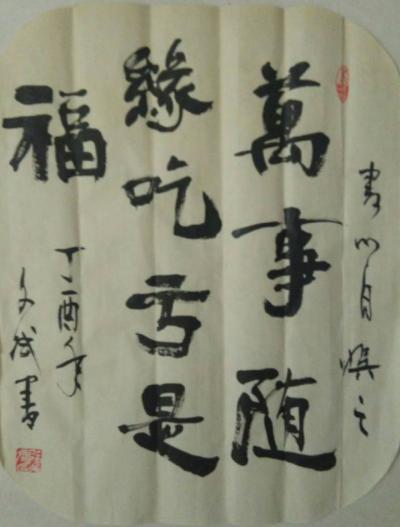 書以自娱之
萬事随
緣吃亏是
福
丁酉年
文成書